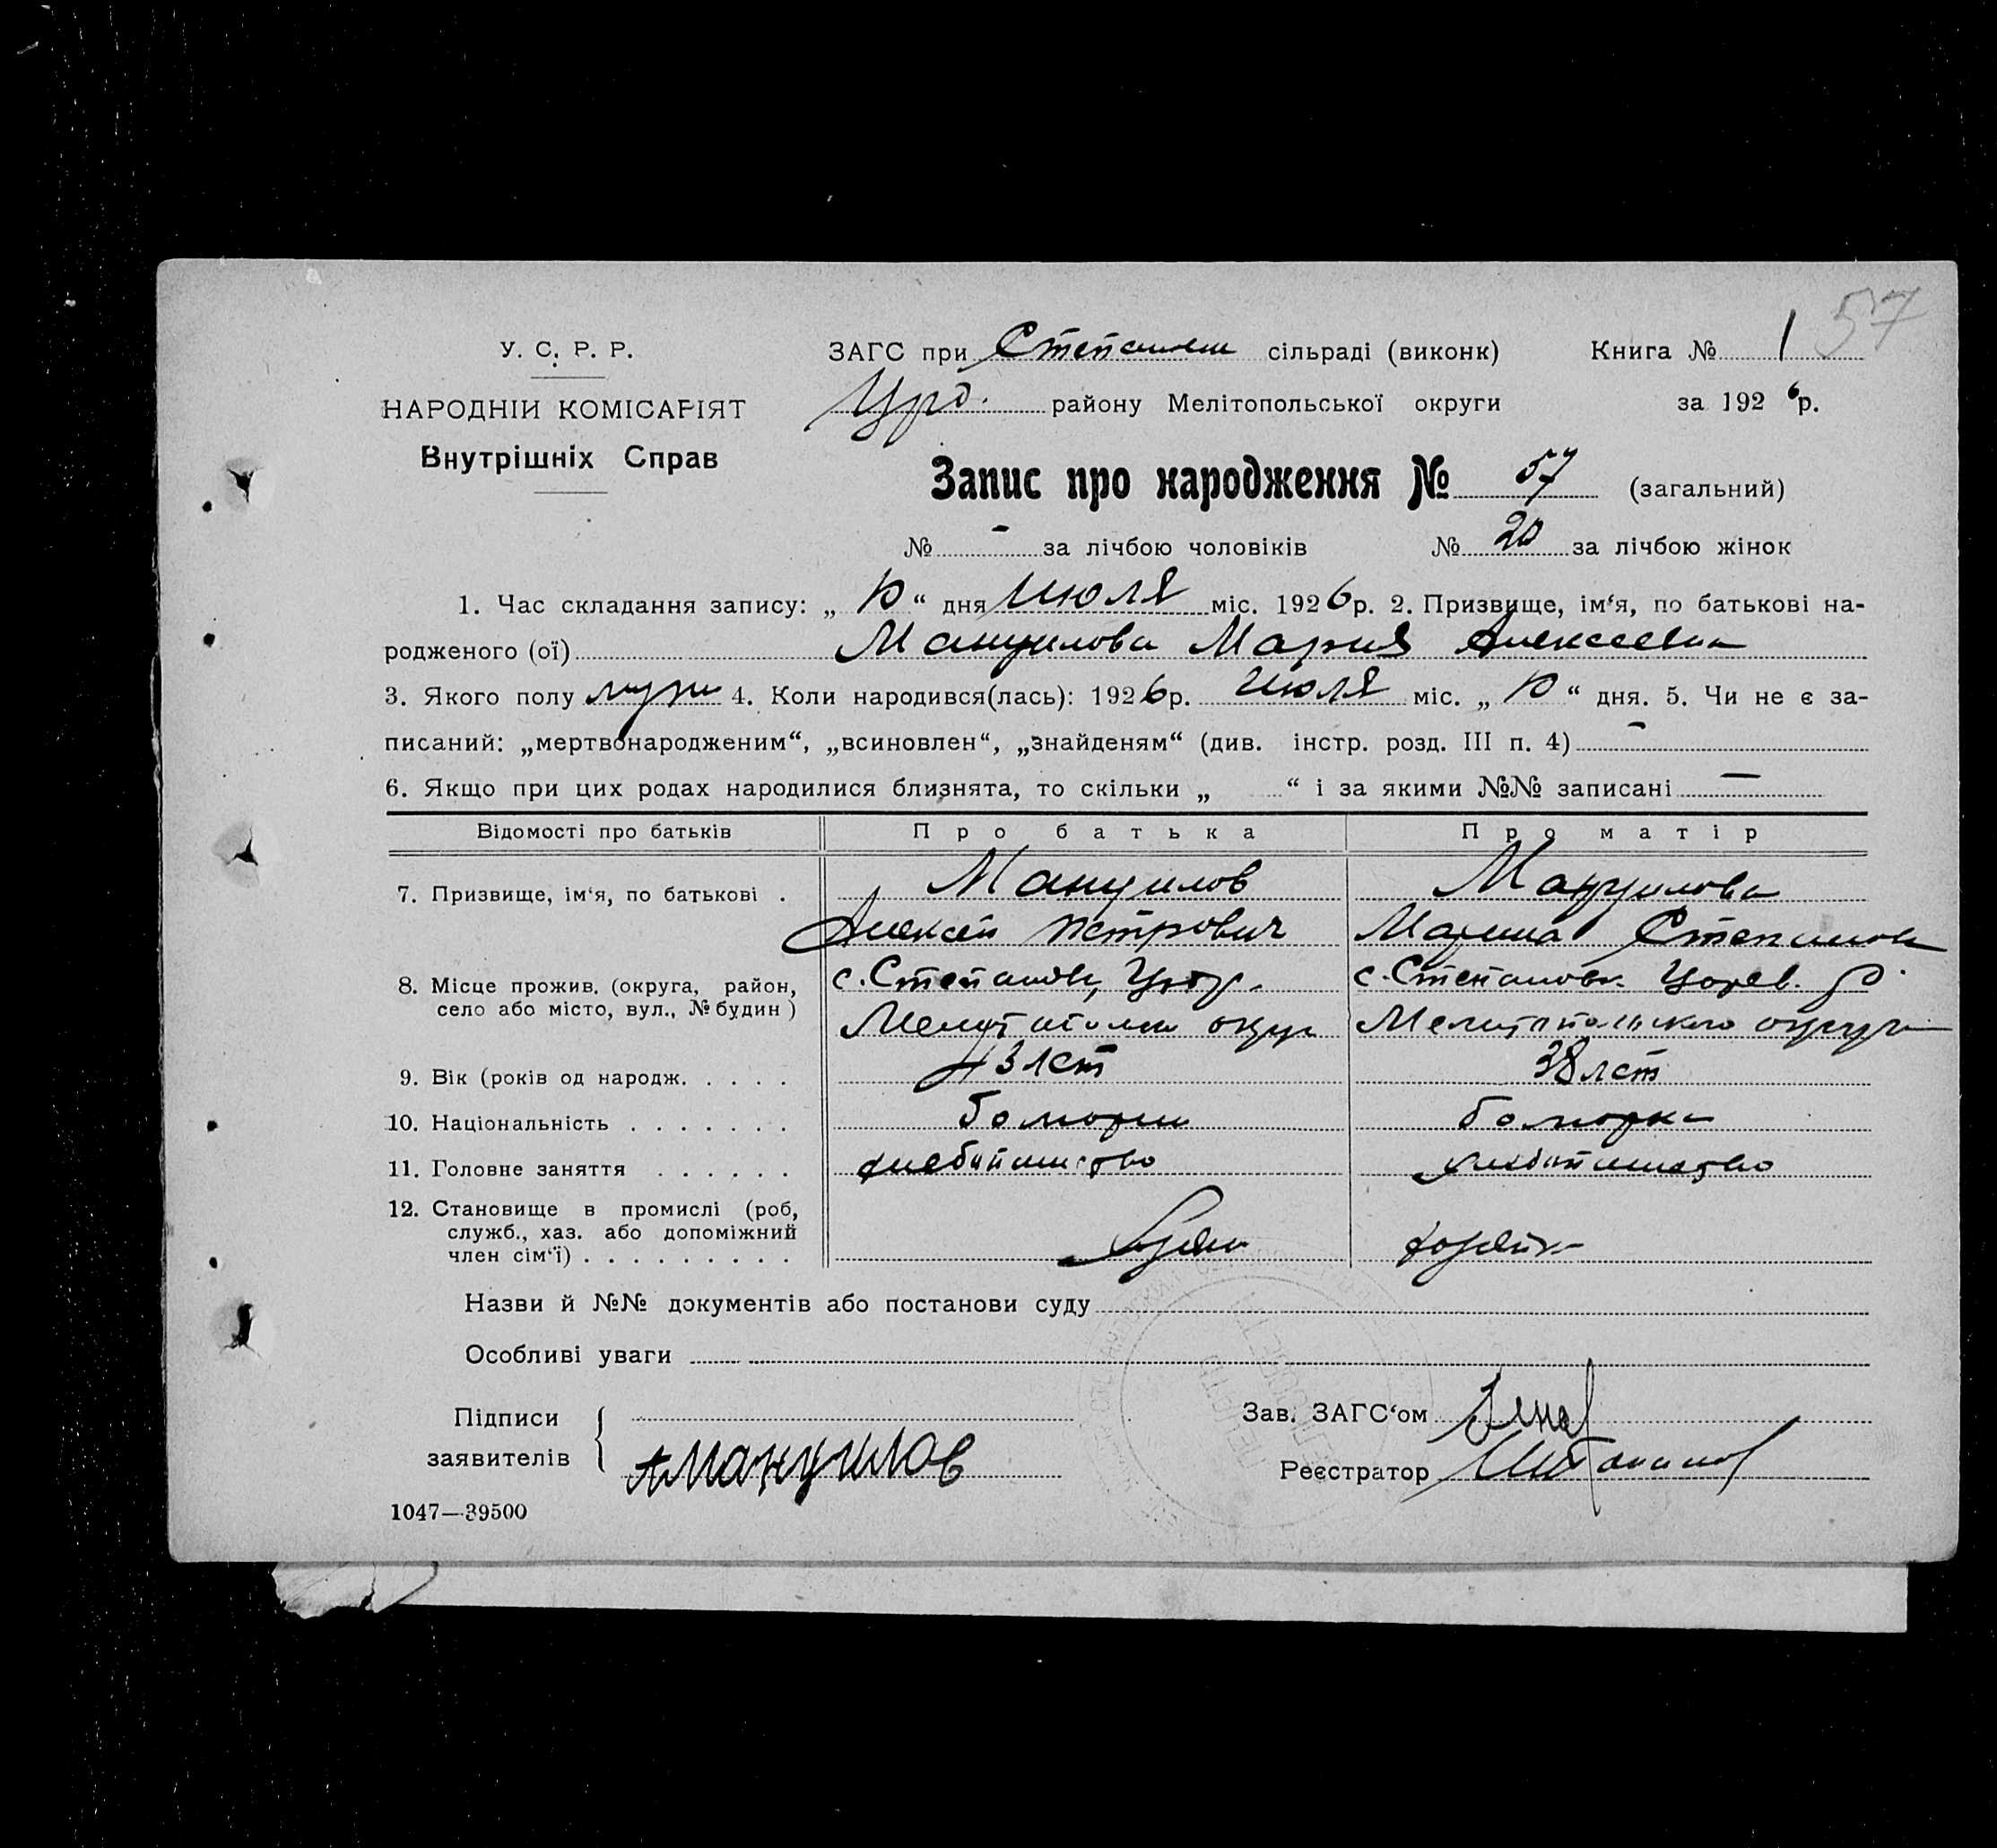 57
У. С. Р. Р.
ЗАГС при сільраді (виконк) Книга № 1
НАРОДНІЙ КОМІСАРІЯТ
району Мелітопольської округи за 1926р.
Внутрішніх Справ
Запис про народження № 57 (загальний)
№ - за лічбою чоловіків № 20 за лічбою жінок
1. Час складання запису: „ 10 “ дня июля міс. 1926р. 2. Призвище, ім‘я, по батькові на-
родженого (ої) Мануилова Мария Алексеевна
3. Якого полу 4. Коли народився(лась): 1926р. июля міс. „ 10 “ дня. 5. Чи не є за-
писаний: „мертвонародженим“, „всиновлен“, „знайденям“ (див. інстр. розд. III п. 4) -
6. Якщо при цих родах народилися близнята, то скільки „ “ і за якими №№ записані —
Відомості про батьків Про батька Про матір
7. Призвище, ім‘я, по батькові . Мануилов Мануилова
Алексей Петрович Марина Степанов
8. Місце прожив. (округа, район, с. Степановк, с. Степановк. Царев. р
село або місто, вул., № будин ) Мелитопольского округа
9. Вік (років од народж. . . . . 43 лет 38 лет
10. Національність . . . . . . .
11. Головне заняття . . . . . . хлебопашество хлебопашество
12. Становище в промислі (роб,
служб., хаз. або допоміжний
член сім‘ї) . . . . . . . . . хозяин хозяйка
Назви й №№ документів або постанови суду
Особливі уваги
Підписи
Зав. ЗАГС‘ом
заявителів
А Мануилов
Реєстратор
1047—39500